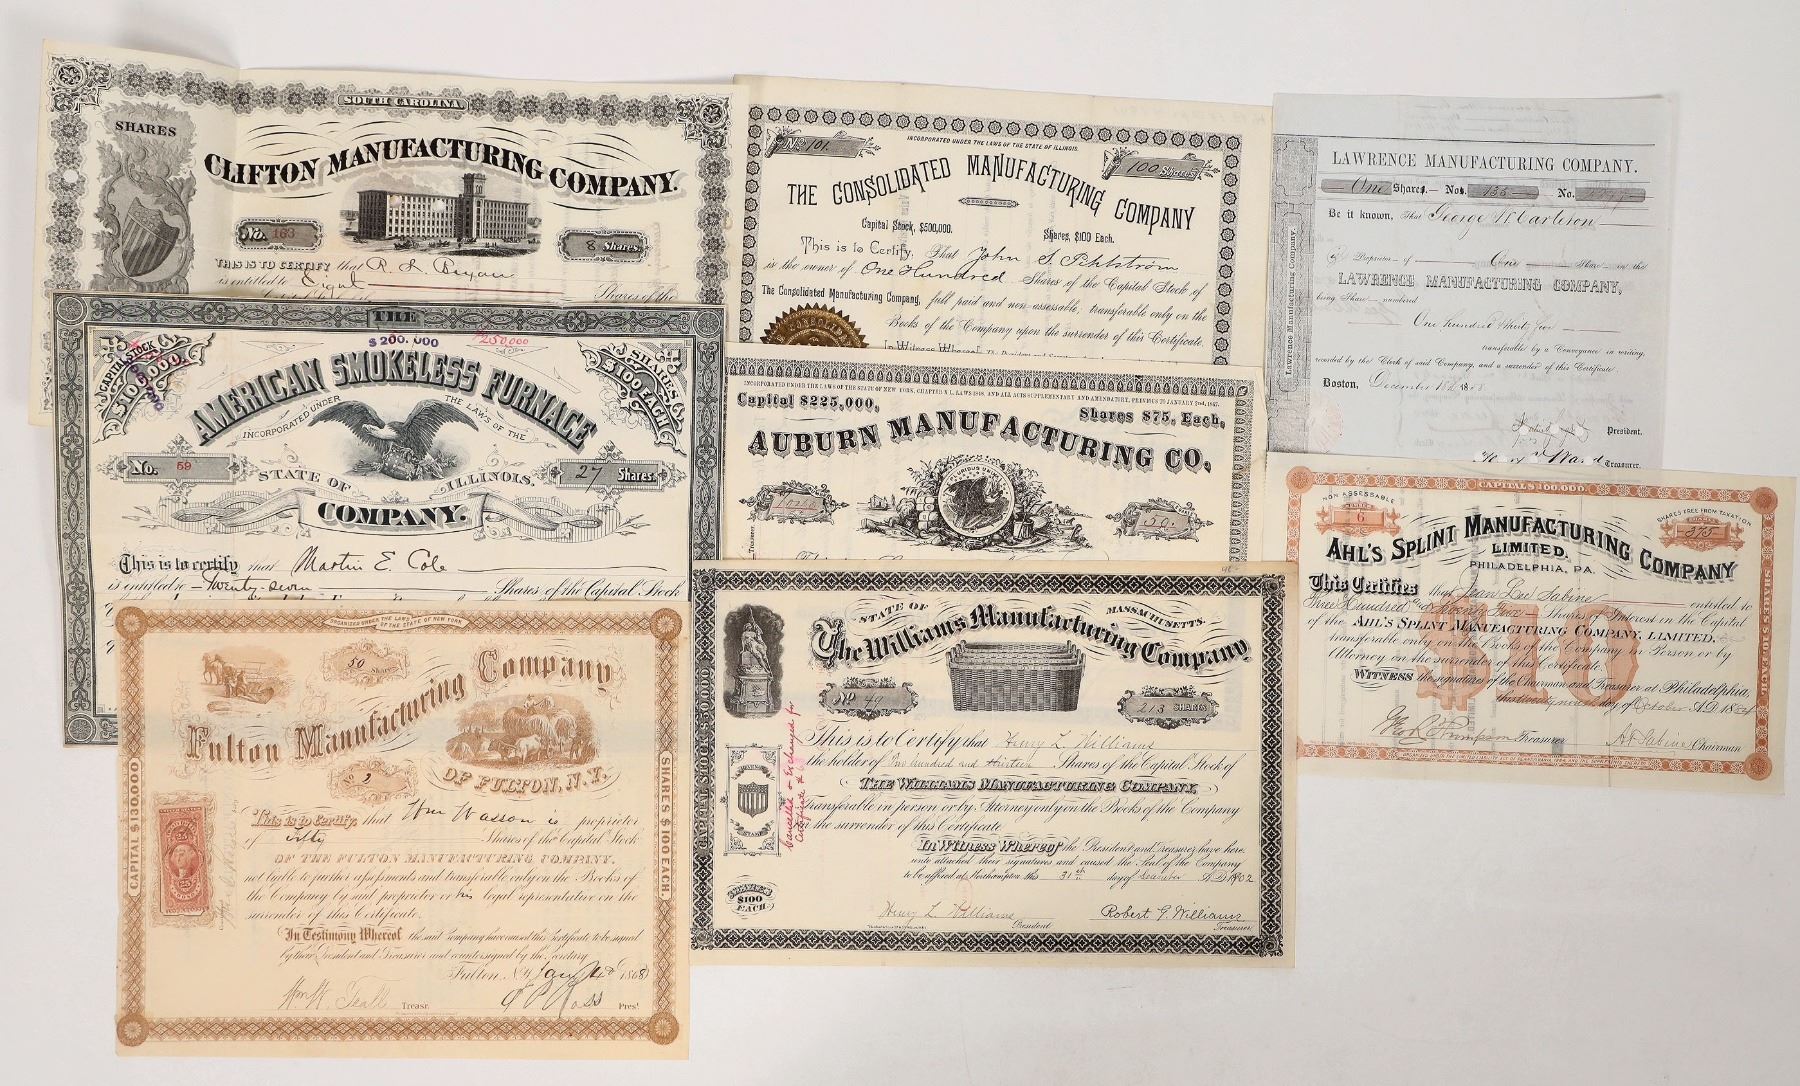 SOUTH CAROLINA
SHARES
CLIFTON MANUFACTURING COMPANY.
No. 163
8 Shares.
THIS IS TO CERTIFY that R. L. Bryan
is entitled to Eight Shares of the
THE
$200,000
$250,000
CAPITAL STOCK $100,000.
SHARES $100 EACH.
AMERICAN SMOKELESS FURNACE
INCORPORATED UNDER THE LAWS OF THE
No. 59
STATE OF ILLINOIS.
27 Shares.
COMPANY.
This is to certify that Martin E. Cole
is entitled to Twenty-seven Shares of the Capital Stock
ORGANIZED UNDER THE LAWS OF THE STATE OF NEW YORK
50 Shares
Fulton Manufacturing Company
No 2
OF FULTON, N.Y.
CAPITAL $130,000
SHARES $100 EACH.
This is to Certify, that Wm Wasson is proprietor
of Fifty Shares of the Capital Stock
OF THE FULTON MANUFACTURING COMPANY.
not liable to further assessments and transferable only on the Books of
the Company by said proprietor or his legal representative on the
surrender of this Certificate.
In Testimony Whereof the said Company have caused this Certificate to be signed
by their President and Treasurer and countersigned by the Secretary
Fulton, N.Y. Jany 1868
Wm H. Teall Treasr.
Prest
INCORPORATED UNDER THE LAWS OF THE STATE OF ILLINOIS.
No. 101.
100 Shares
THE CONSOLIDATED MANUFACTURING COMPANY
Capital Stock, $500,000.
Shares, $100 Each.
This is to Certify, That John S. Pihlström
is the owner of One Hundred Shares of the Capital Stock of
The Consolidated Manufacturing Company, full paid and non-assessable; transferable only on the
Books of the Company upon the surrender of this Certificate.
In Witness Whereof,
Capital $225,000,
Shares $75, Each.
AUBURN MANUFACTURING CO.
50.
STATE OF MASSACHUSETTS.
The Williams Manufacturing Company
No 49
213 SHARES
CAPITAL STOCK $50,000
Cancelled & Exchanged for
This is to Certify that Henry L. Williams
the holder of Two hundred and thirteen Shares of the Capital Stock of
THE WILLIAMS MANUFACTURING COMPANY.
Transferable in person or by Attorney only on the Books of the Company
on the surrender of this Certificate
In Witness Whereof the President and Treasurer have here
unto attached their signatures and caused the Seal of the Company
to be affixed at Northampton this 31st day of December A.D. 1902
SHARES $100 EACH.
Henry L. Williams President
Robert G. Williams Treasurer
LAWRENCE MANUFACTURING COMPANY.
One Shares.— Nos. 135 — No.
Be it known, That George W. Carleton
is Proprietor of One Share in the
LAWRENCE MANUFACTURING COMPANY,
being Share numbered
One hundred thirty five
transferable by a Conveyance in writing,
recorded by the Clerk of said Company, and a surrender of this Certificate.
Boston, December
Lawrence Manufacturing Company.
President.
Ward Treasurer.
CAPITAL $100,000.
NON ASSESSABLE
SHARES FREE FROM TAXATION
6
375
AHL'S SPLINT MANUFACTURING COMPANY
LIMITED.
PHILADELPHIA, PA.
$10
SHARES $10 EACH.
This Certifies that Jean Lee Sabine entitled to
Three Hundred and Seventy Five Shares of Interest in the Capital
of the AHL'S SPLINT MANUFACTURING COMPANY, LIMITED,
transferable only on the Books of the Company in Person or by
Attorney on the surrender of this Certificate.
WITNESS the signatures of the Chairman and Treasurer at Philadelphia,
this twenty ninth day of October A.D. 1884
Thompson Treasurer
A. F. Sabine Chairman